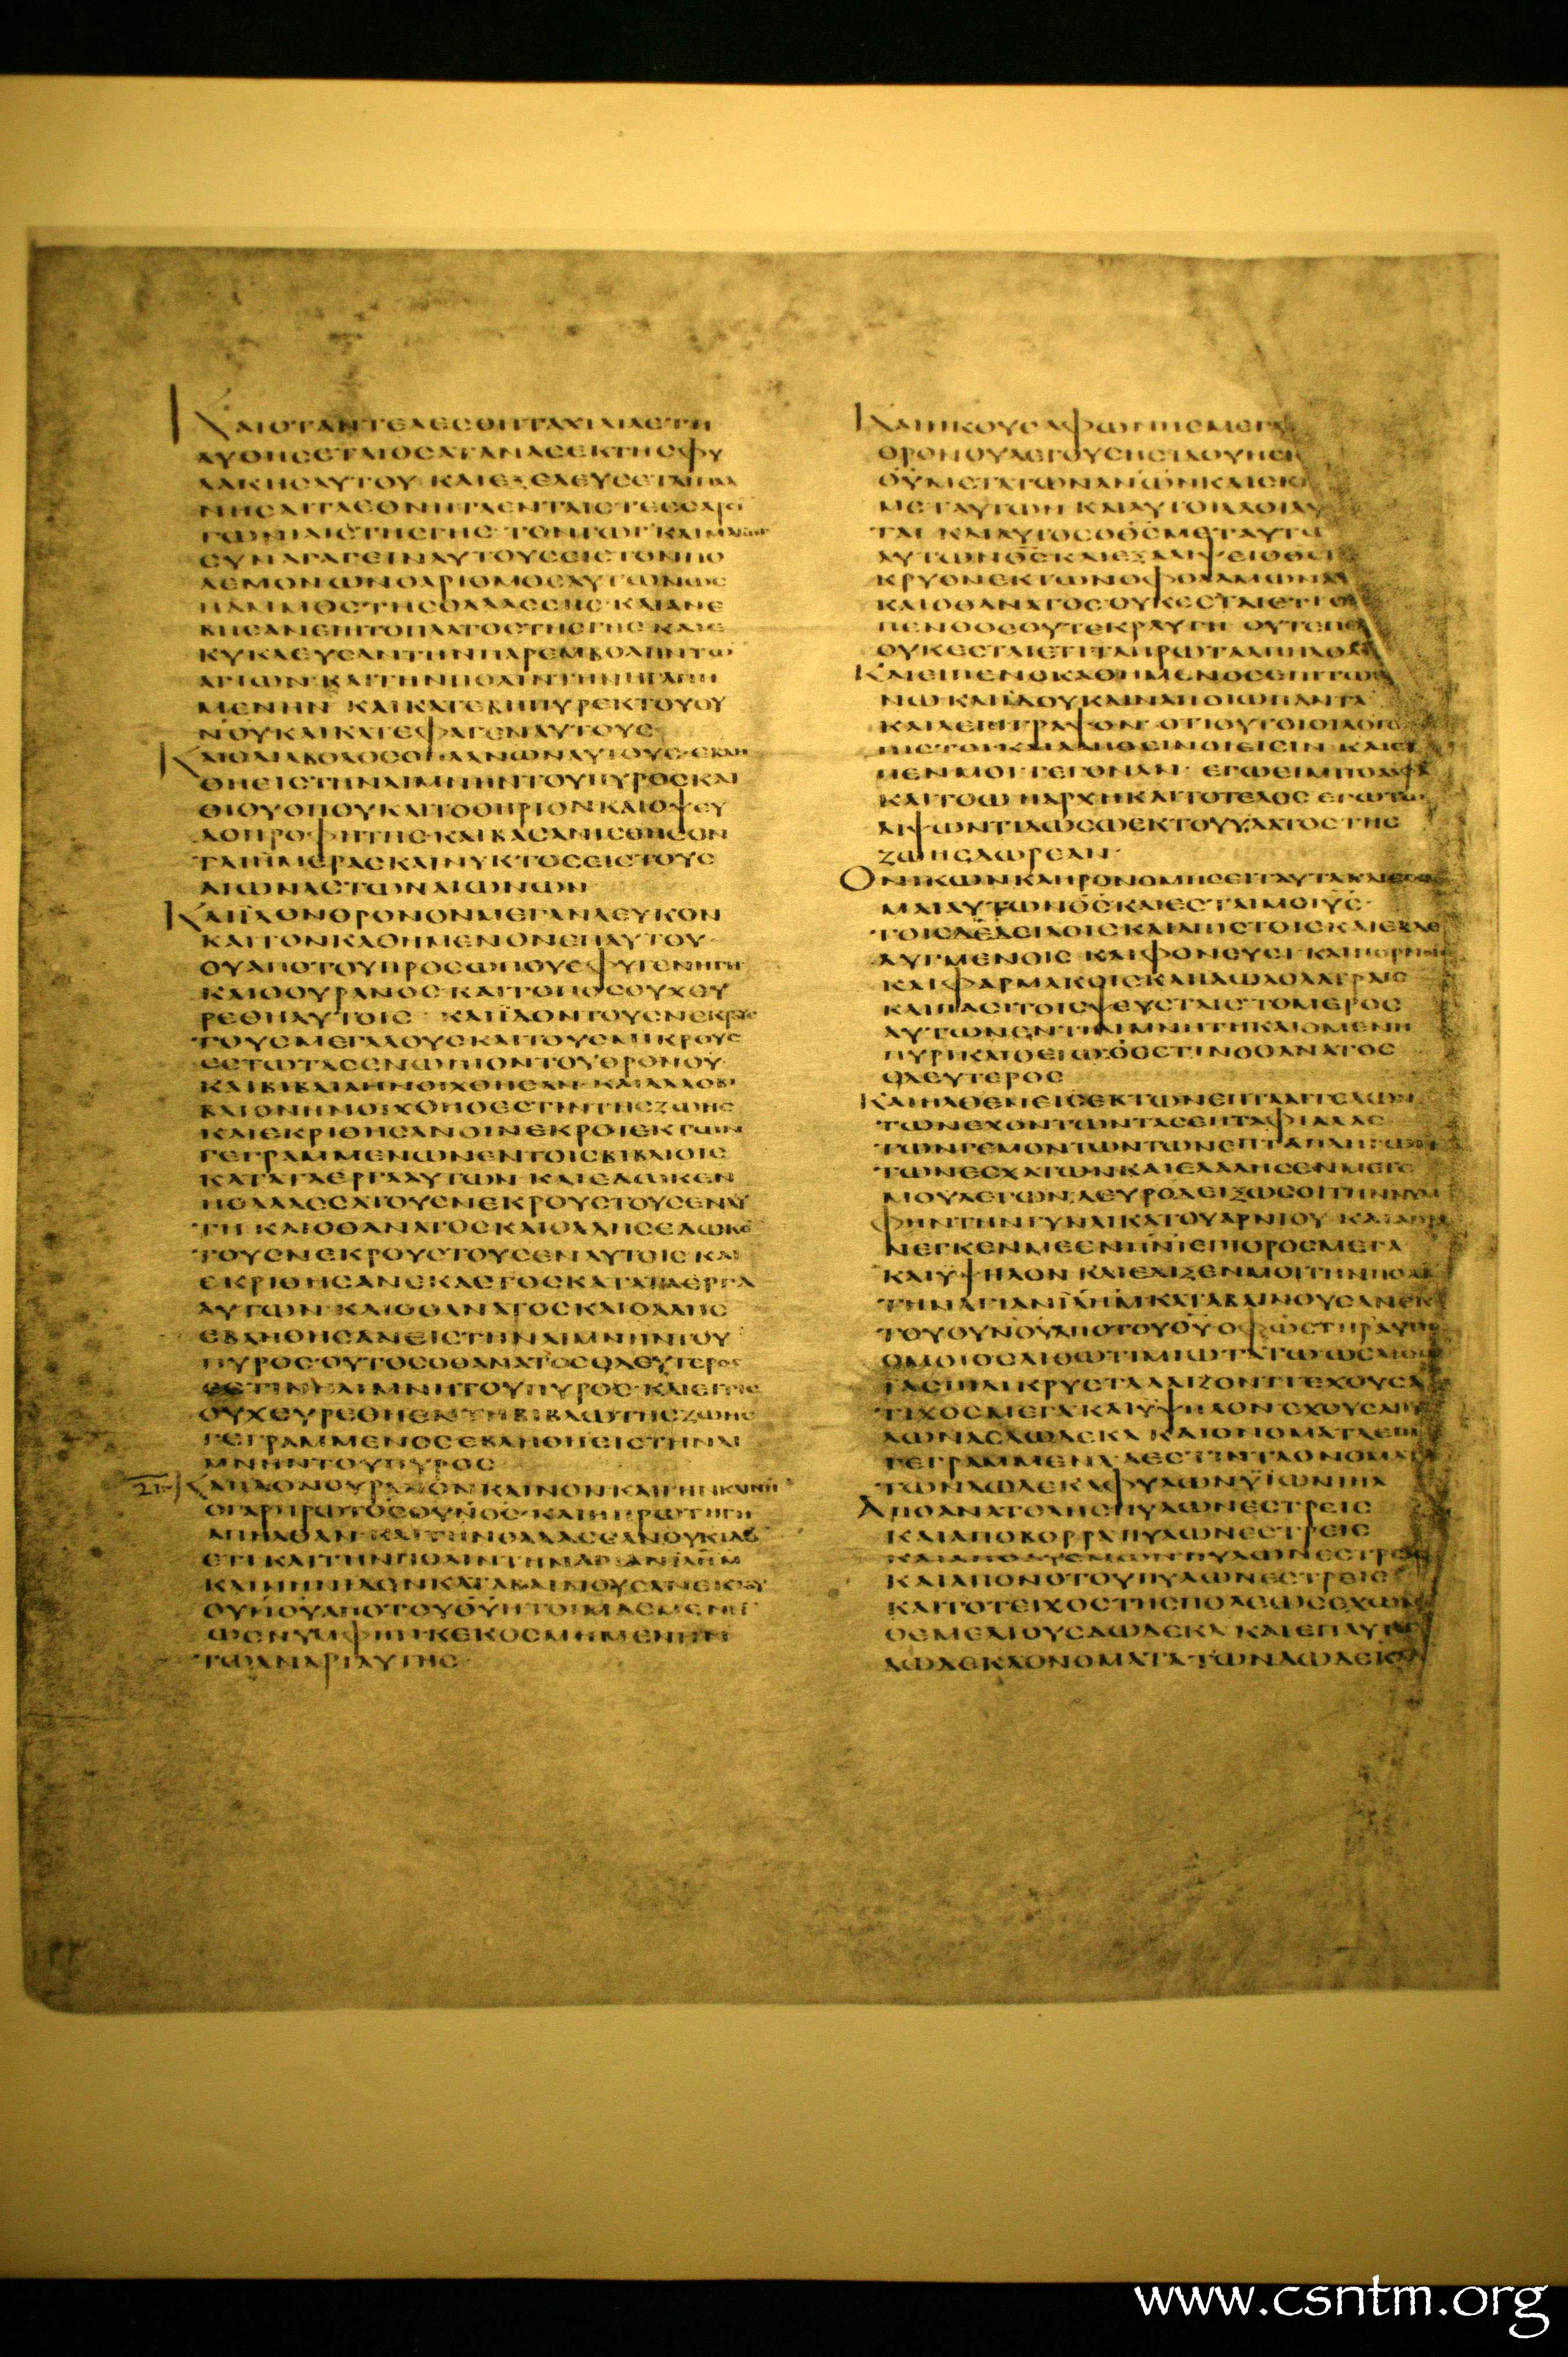 ΚΑΙΟΤΑΝΤΕΛΕΣΘΗΤΑΧΙΛΙΑΕΤΗ
ΛΥΘΗΣΕΤΑΙΟΣΑΤΑΝΑΣΕΚΤΗΣΦΥ
ΛΑΚΗΣΑΥΤΟΥ ΚΑΙΕΞΕΛΕΥΣΕΤΑΙ
ΤΑΕΘΝΗΤΑΕΝΤΑΙΣΤΕΣΣΑΡΣΙ
ΓΩΝΙΑΙΣΤΗΣΓΗΣ ΤΟΝΓΩΓ ΚΑΙ
ΣΥΝΑΓΑΓΕΙΝΑΥΤΟΥΣΕΙΣΤΟΝΠΟ
ΛΕΜΟΝΩΝΟΑΡΙΘΜΟΣΑΥΤΩΝΩΣ
ΗΑΜΜΟΣΤΗΣΘΑΛΑΣΣΗΣ ΚΑΙΑΝΕ
ΒΗΣΑΝΕΠΙΤΟΠΛΑΤΟΣΤΗΣΓΗΣ ΚΑΙΕ
ΚΥΚΛΕΥΣΑΝΤΗΝΠΑΡΕΜΒΟΛΗΝΤΩ
ΑΓΙΩΝ ΚΑΙΤΗΝΠΟΛΙΝΤΗΝΗΓΑΠΗ
ΜΕΝΗΝ ΚΑΙΚΑΤΕΒΗΠΥΡΕΚΤΟΥΟΥ
ΝΟΥΚΑΙΚΑΤΕΦΑΓΕΝΑΥΤΟΥΣ
ΚΑΙΟΔΙΑΒΟΛΟΣΟΠΛΑΝΩΝΑΥΤΟΥΣ ΕΒΛΗ
ΘΗΕΙΣΤΗΝΛΙΜΝΗΝΤΟΥΠΥΡΟΣΚΑΙ
ΘΙΟΥΟΠΟΥΚΑΙΤΟΘΗΡΙΟΝΚΑΙΟΨΕΥ
ΔΟΠΡΟΦΗΤΗΣ ΚΑΙΒΑΣΑΝΙΣΘΗΣΟΝ
ΤΑΙΗΜΕΡΑΣΚΑΙΝΥΚΤΟΣΕΙΣΤΟΥΣ
ΑΙΩΝΑΣΤΩΝΑΙΩΝΩΝ
ΚΑΙΪΔΟΝΘΡΟΝΟΝΜΕΓΑΝΛΕΥΚΟΝ
ΚΑΙΤΟΝΚΑΘΗΜΕΝΟΝΕΠΑΥΤΟΥ
ΟΥΑΠΟΤΟΥΠΡΟΣΩΠΟΥΕΦΥΓΕΝΗΓΗ
ΚΑΙΟΟΥΡΑΝΟΣ ΚΑΙΤΟΠΟΣΟΥΧΕΥ
ΡΕΘΗΑΥΤΟΙΣ ΚΑΙΪΔΟΝΤΟΥΣΝΕΚΡΟΥΣ
ΤΟΥΣΜΕΓΑΛΟΥΣΚΑΙΤΟΥΣΜΙΚΡΟΥΣ
ΕΣΤΩΤΑΣΕΝΩΠΙΟΝΤΟΥΘΡΟΝΟΥ
ΚΑΙΒΙΒΛΙΑΗΝΟΙΧΘΗΣΑΝ ΚΑΙΑΛΛΟΒΙ
ΒΛΙΟΝΗΝΟΙΧΘΗΟΕΣΤΙΝΤΗΣΖΩΗΣ
ΚΑΙΕΚΡΙΘΗΣΑΝΟΙΝΕΚΡΟΙΕΚΤΩΝ
ΓΕΓΡΑΜΜΕΝΩΝΕΝΤΟΙΣΒΙΒΛΙΟΙΣ
ΚΑΤΑΤΑΕΡΓΑΑΥΤΩΝ ΚΑΙΕΔΩΚΕΝ
ΗΘΑΛΑΣΣΑΤΟΥΣΝΕΚΡΟΥΣΤΟΥΣΕΝΑΥ
ΤΗ ΚΑΙΟΘΑΝΑΤΟΣΚΑΙΟΑΔΗΣΕΔΩΚΕ
ΤΟΥΣΝΕΚΡΟΥΣΤΟΥΣΕΝΑΥΤΟΙΣ ΚΑΙ
ΕΚΡΙΘΗΣΑΝΕΚΑΣΤΟΣΚΑΤΑΤΑΕΡΓΑ
ΑΥΤΩΝ ΚΑΙΟΘΑΝΑΤΟΣΚΑΙΟΑΔΗΣ
ΕΒΛΗΘΗΣΑΝΕΙΣΤΗΝΛΙΜΝΗΝΤΟΥ
ΠΥΡΟΣ ΟΥΤΟΣΟΘΑΝΑΤΟΣΟΔΕΥΤΕΡΟΣ
ΕΣΤΙΝΗΛΙΜΝΗΤΟΥΠΥΡΟΣ ΚΑΙΕΙΤΙΣ
ΟΥΧΕΥΡΕΘΗΕΝΤΗΒΙΒΛΩΤΗΣΖΩΗΣ
ΓΕΓΡΑΜΜΕΝΟΣΕΒΛΗΘΗΕΙΣΤΗΝΛΙ
ΜΝΗΝΤΟΥΠΥΡΟΣ
21 ΚΑΙΪΔΟΝΟΥΡΑΝΟΝΚΑΙΝΟΝΚΑΙΓΗΝΚΑΙΝΗ
ΟΓΑΡΠΡΩΤΟΣΟΥΝΟΣ ΚΑΙΗΠΡΩΤΗΓΗ
ΑΠΗΛΘΑΝ ΚΑΙΤΗΝΘΑΛΑΣΣΑΝΟΥΚΙΔΟ
ΕΤΙ ΚΑΙΤΗΝΠΟΛΙΝΤΗΝΑΓΙΑΝΙΛΗΜ
ΚΑΙΝΗΝΙΔΟΝΚΑΤΑΒΑΙΝΟΥΣΑΝΕΚΤΟΥ
ΟΥΝΟΥΑΠΟΤΟΥΘΥΗΤΟΙΜΑΣΜΕΝΗ
ΩΣΝΥΜΦΗΝΚΕΚΟΣΜΗΜΕΝΗΝ
ΤΩΑΝΔΡΙΑΥΤΗΣ
ΚΑΙΗΚΟΥΣΑΦΩΝΗΣΜΕΓΑ
ΘΡΟΝΟΥΛΕΓΟΥΣΗΣΙΔΟΥΗΣΚ
ΘΥΜΕΤΑΤΩΝΑΝΩΝΚΑΙΣΚ
ΜΕΤΑΥΤΩΝ ΚΑΙΑΥΤΟΙΛΑΟΙΑΥ
ΤΑΙ ΚΑΙΑΥΤΟΣΟΘΣΜΕΤΑΥΤΩ
ΑΥΤΩΝΘΣΚΑΙΕΞΑΛΙΨΕΙΟΘΣ
ΚΡΥΟΝΕΚΤΩΝΟΦΘΑΛΜΩΝΑΥ
ΚΑΙΟΘΑΝΑΤΟΣΟΥΚΕΣΤΑΙΕΤΙ
ΠΕΝΘΟΣΟΥΤΕΚΡΑΥΓΗ ΟΥΤΕΠΟ
ΟΥΚΕΣΤΑΙΕΤΙΤΑΠΡΩΤΑΑΠΗΛΘΑ
ΚΑΙΕΙΠΕΝΟΚΑΘΗΜΕΝΟΣΕΠΙΤΩΘΡΟ
ΝΩ ΚΑΙΪΔΟΥΚΑΙΝΑΠΟΙΩΠΑΝΤΑ
ΚΑΙΛΕΓΕΙΓΡΑΨΟΝ ΟΤΙΟΥΤΟΙΟΙΛΟΓΟΙ
ΠΙΣΤΟΙΚΑΙΑΛΗΘΕΙΝΟΙΕΙΣΙΝ ΚΑΙΕΙ
ΠΕΝΜΟΙΓΕΓΟΝΑΝ ΕΓΩΕΙΜΙΤΟΑΛΦΑ
ΚΑΙΤΟΩ ΗΑΡΧΗΚΑΙΤΟΤΕΛΟΣ ΕΓΩΤΩ
ΔΙΨΩΝΤΙΔΩΣΩΕΚΤΟΥΥΔΑΤΟΣΤΗΣ
ΖΩΗΣΔΩΡΕΑΝ
ΟΝΙΚΩΝΚΛΗΡΟΝΟΜΗΣΕΙΤΑΥΤΑΚΑΙΕΣΟ
ΜΑΙΑΥΤΩΝΘΣΚΑΙΕΣΤΑΙΜΟΙΥΣ
ΤΟΙΣΔΕΔΕΙΛΟΙΣΚΑΙΑΠΙΣΤΟΙΣΚΑΙΕΒΔΕ
ΛΥΓΜΕΝΟΙΣ ΚΑΙΦΟΝΕΥΣΙ ΚΑΙΠΟΡΝΟΙΣ
ΚΑΙΦΑΡΜΑΚΟΙΣΚΑΙΙΔΩΛΟΛΑΤΡΑΙΣ
ΚΑΙΠΑΣΙΤΟΙΣΨΕΥΣΤΑΙΣ ΤΟΜΕΡΟΣ
ΑΥΤΩΝΕΝΤΗΛΙΜΝΗΤΗΚΑΙΟΜΕΝΗ
ΠΥΡΙΚΑΙΘΕΙΩ ΟΕΣΤΙΝΟΘΑΝΑΤΟΣ
ΟΔΕΥΤΕΡΟΣ
ΚΑΙΗΛΘΕΝΕΙΣΕΚΤΩΝΕΠΤΑΑΓΓΕΛΩΝ
ΤΩΝΕΧΟΝΤΩΝΤΑΣΕΠΤΑΦΙΑΛΑΣ
ΤΩΝΓΕΜΟΝΤΩΝΤΩΝΕΠΤΑΠΛΗΓΩΝ
ΤΩΝΕΣΧΑΤΩΝΚΑΙΕΛΑΛΗΣΕΝΜΕΤΕ
ΜΟΥΛΕΓΩΝ ΔΕΥΡΟΔΕΙΞΩΣΟΙΤΗΝΝΥΜ
ΦΗΝΤΗΝΓΥΝΑΙΚΑΤΟΥΑΡΝΙΟΥ ΚΑΙΑΠΗ
ΝΕΓΚΕΝΜΕΕΝΠΝΙΕΠΙΟΡΟΣΜΕΓΑ
ΚΑΙΥΨΗΛΟΝ ΚΑΙΕΔΙΞΕΝΜΟΙΤΗΝΠΟΛΙ
ΤΗΝΑΓΙΑΝΙΛΗΜΚΑΤΑΒΑΙΝΟΥΣΑΝΕΚ
ΤΟΥΟΥΝΟΥΑΠΟΤΟΥΘΥ ΟΦΩΣΤΗΡΑΥΤΗΣ
ΟΜΟΙΟΣΛΙΘΩΤΙΜΙΩΤΑΤΩΩΣΛΙΘΩ
ΙΑΣΠΙΔΙΚΡΥΣΤΑΛΛΙΖΟΝΤΙΕΧΟΥΣΑ
ΤΙΧΟΣΜΕΓΑΚΑΙΥΨΗΛΟΝ ΕΧΟΥΣΑΠΥ
ΛΩΝΑΣΔΩΔΕΚΑ ΚΑΙΟΝΟΜΑΤΑΕΠΙ
ΓΕΓΡΑΜΜΕΝΑ ΑΕΣΤΙΝΤΑΟΝΟΜΑΤΑ
ΤΩΝΔΩΔΕΚΑΦΥΛΩΝΥΙΩΝΙΗΛ
ΑΠΟΑΝΑΤΟΛΗΣΠΥΛΩΝΕΣΤΡΕΙΣ
ΚΑΙΑΠΟΒΟΡΡΑΠΥΛΩΝΕΣΤΡΕΙΣ
ΚΑΙΑΠΟΔΥΣΜΩΝΠΥΛΩΝΕΣΤΡΕΙΣ
ΚΑΙΑΠΟΝΟΤΟΥΠΥΛΩΝΕΣΤΡΕΙΣ
ΚΑΙΤΟΤΕΙΧΟΣΤΗΣΠΟΛΕΩΣΕΧΩΝ
ΘΕΜΕΛΙΟΥΣΔΩΔΕΚΑ ΚΑΙΕΠΑΥΤΩ
ΔΩΔΕΚΑΟΝΟΜΑΤΑΤΩΝΔΩΔΕΚΑ
www.csntm.org